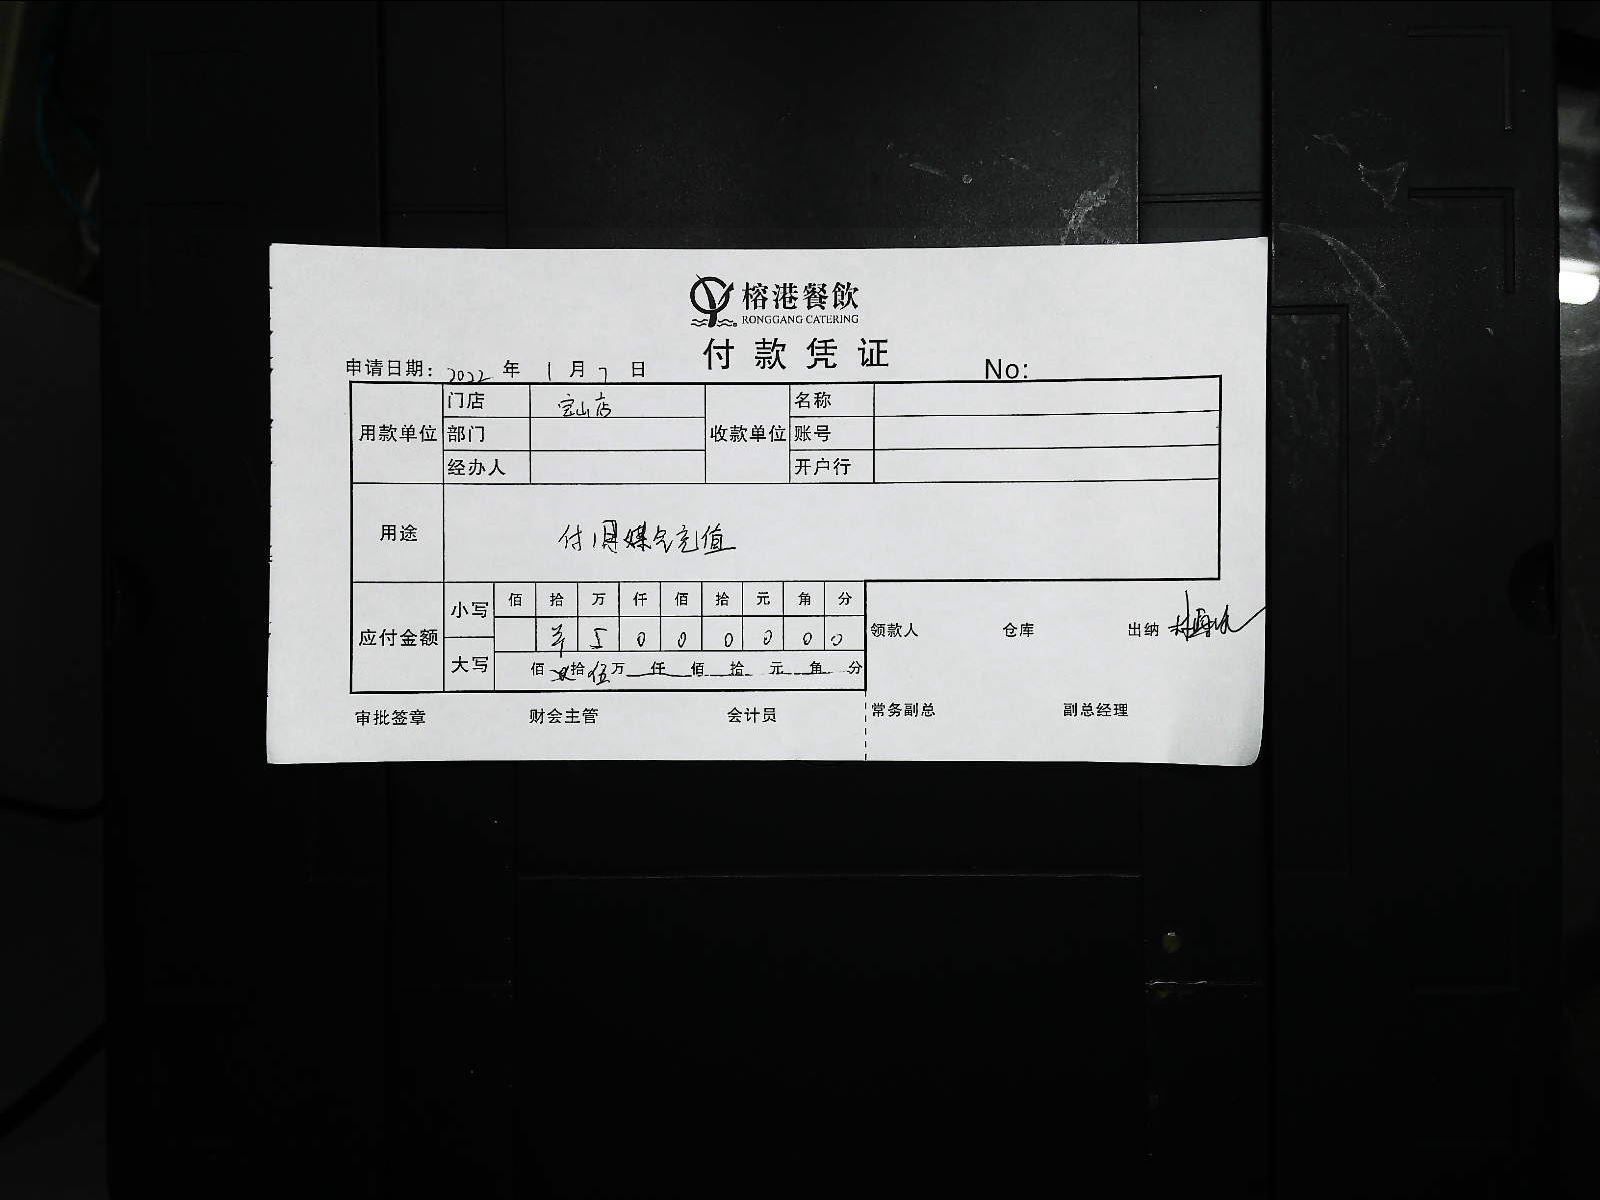 榕港餐飲
RONGGANG CATERING
付款凭证
申请日期: 2022 年 1 月 7 日
No:
用款单位 门店 宝山店 收款单位 名称
部门 账号
经办人 开户行
用途 付1月媒气充值
应付金额 小写 佰 拾 万 仟 佰 拾 元 角 分
羊 5 0 0 0 0 0 0
大写 佰 拾 伍 万 仟 佰 拾 元 角 分
领款人 仓库 出纳
常务副总 副总经理
审批签章 财会主管 会计员